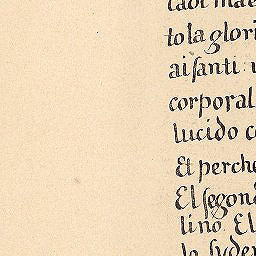 to la glori
ai santi
corporal
lucido co
Et perche
El segond
lino. El